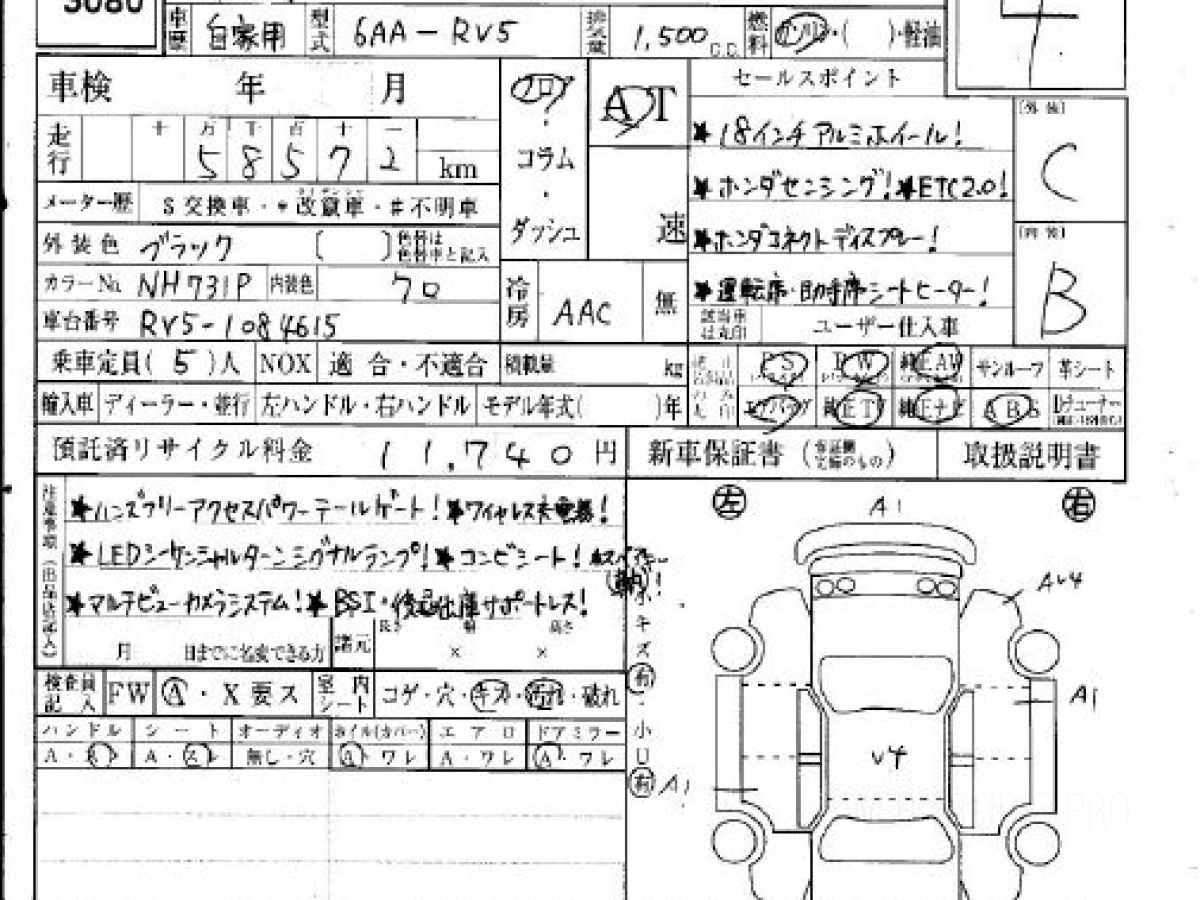 3080
車歴 自家用 型式 6AA-RV5 排気量 1,500 C.C. 燃料 ガソリン・( )・軽油
4
車検 年 月
フロア・コラム・ダッシュ
AT
速
セールスポイント
★18インチアルミホイール!
★ホンダセンシング!★ETC2.0!
★ホンダコネクトディスプレー!
★運転席・助手席シートヒーター!
[外装]
C
[内装]
B
走行 十 万 千 百 十 一
5 8 5 7 2 km
メーター歴 S交換車・*改竄車・#不明車
外装色 ブラック ( ) 色替は色替車と記入
カラーNo. NH731P 内装色 クロ
冷房 AAC 無
車台番号 RV5-1084615
該当車は丸印 ユーザー仕入車
乗車定員(5)人 NOX 適合・不適合 積載量 kg
PS PW 純正AW サンルーフ 革シート
輸入車 ディーラー・並行 左ハンドル・右ハンドル モデル年式( )年
エアバッグ 純正TV 純正ナビ ABS
預託済リサイクル料金 11,740円
新車保証書 取扱説明書
注意事項(出品店記入)
★ハンズフリーアクセスパワーテールゲート!★ワイヤレス充電器!
★LEDシーケンシャルターンシグナルランプ!★コンビシート!
★マルチビューカメラシステム!★BSI・後退出庫サポートレス!
月 日までに名変できる方 諸元 長さ × 幅 × 高さ
検査員記入 FW A・X要ス 室内シート コゲ・穴・キズ・汚れ・破れ
ハンドル シート オーディオ ホイル(カバー) エアロ ドアミラー
A・スレ A・スレ 無し・穴 A・ワレ A・ワレ A・ワレ
キズ
有
小
有
左 A1 右
A1
A1
V4